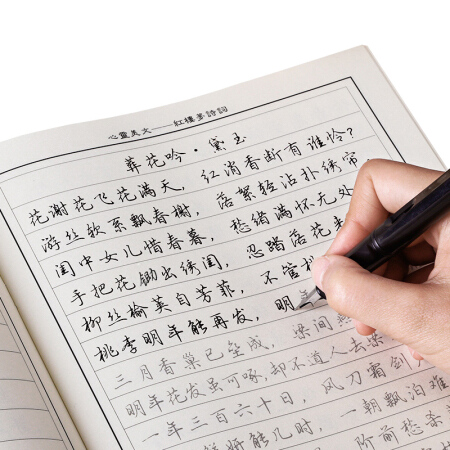 心靈美文——紅樓夢詩詞
葬花吟·黛玉
花谢花飞花满天，红消香断有谁怜？
游丝软系飘春榭，落絮轻沾扑绣帘
闺中女儿惜春暮，愁绪满怀无处
手把花锄出绣闺，忍踏落花来
柳丝榆荚自芳菲，不管桃
桃李明年能再发，明年
三月香巢已垒成，梁间燕
明年花发虽可啄，却不道人去梁
一年三百六十日，风刀霜剑
鲜妍能几时，一朝飘泊难
阶前愁杀